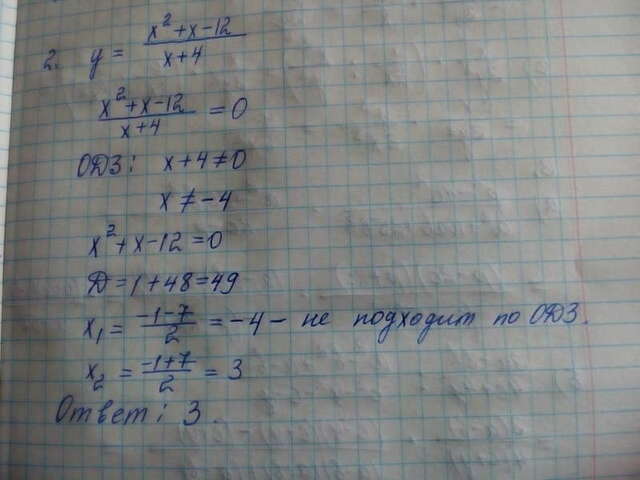 2. y = (x² + x - 12)/(x + 4)
(x² + x - 12)/(x + 4) = 0
ОДЗ: x + 4 ≠ 0
x ≠ -4
x² + x - 12 = 0
D = 1 + 48 = 49
x₁ = (-1 - 7)/2 = -4 - не подходит по ОДЗ.
x₂ = (-1 + 7)/2 = 3
Ответ: 3.